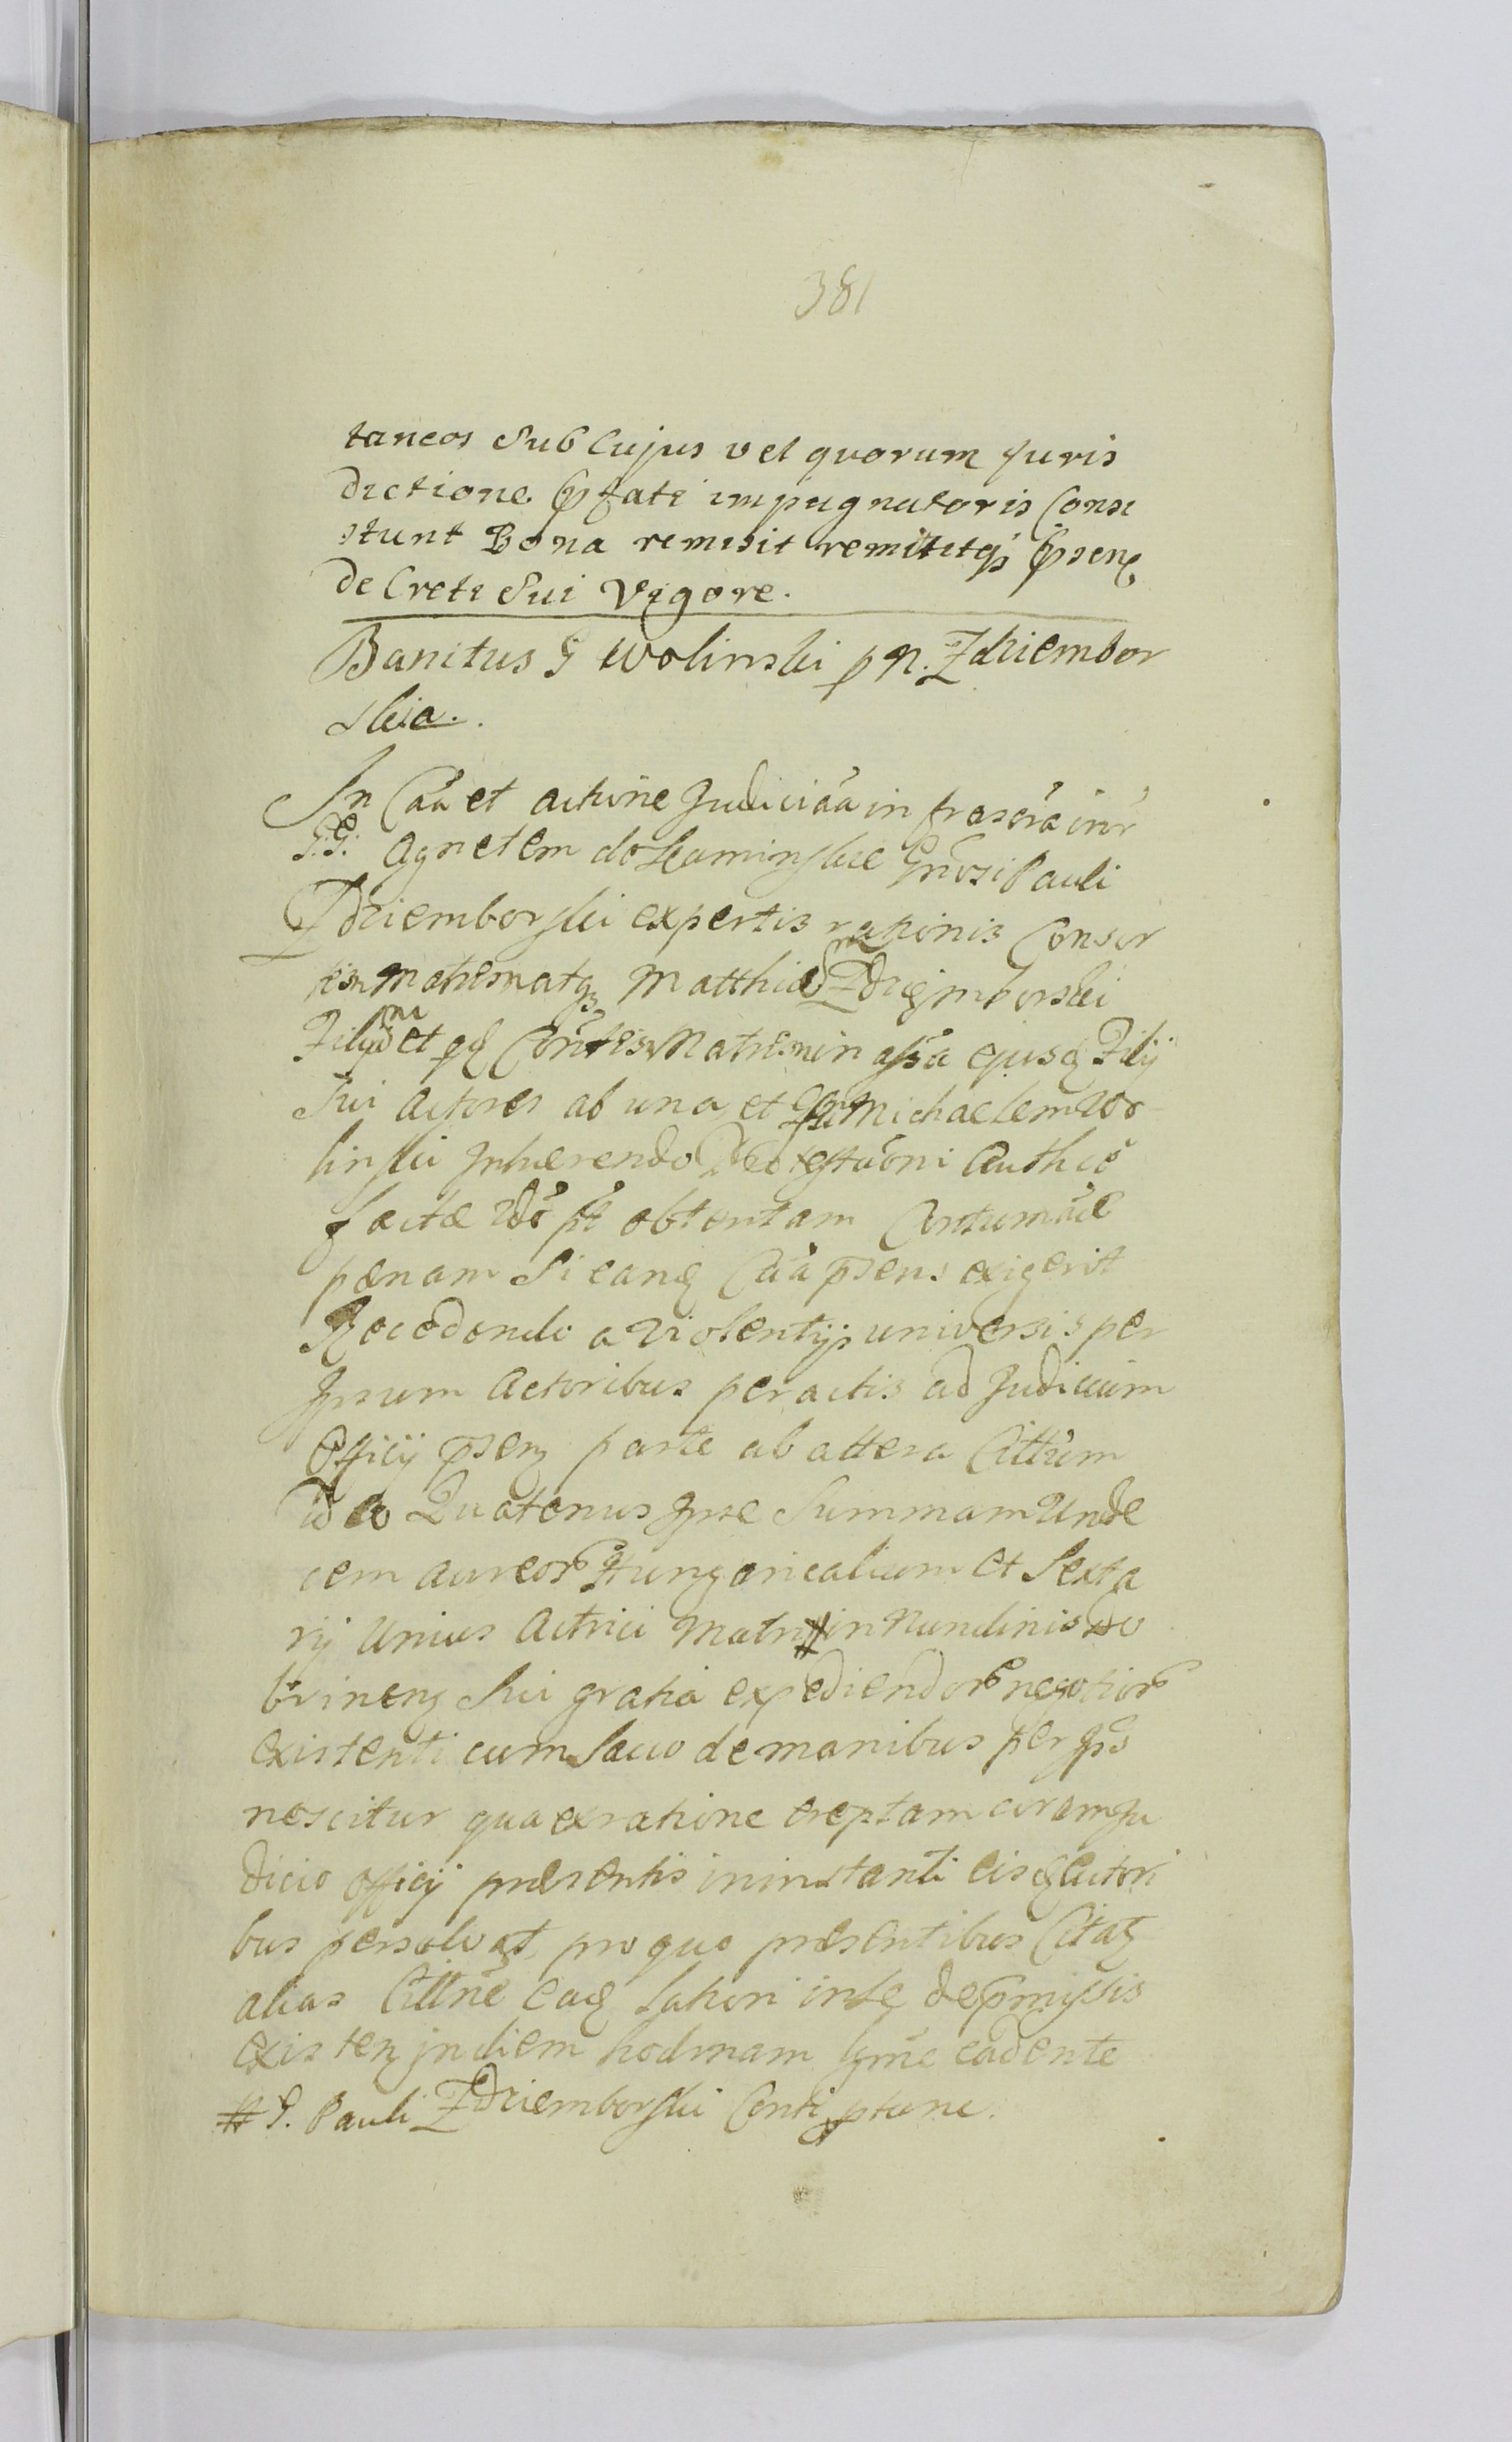 381
taneos Sub Cujus vel quorum Juris
dictione Pfati impugnatoris Consi
stunt Bona remisit remittitqȝ Psenȝ
deCreti Sui Vigore.
Banitus G Wolinski p N. Zdziembor
skia.
In Caa et actione Judiciaa in frascra intr
G.G. Agnetem do Skaminskie Gnosi Pauli
Zdziemborski expertis rationis Consor
tem Matrem atqȝ Matthiam Zdziemborski
Filium et Matrem in assa ejusdȝ Filij
Sui Actores ab una et Gn Michaelem Wo
linski Inhærendo Protestationi Authce
factæ Vdo pt obtentam Contumaciæ
pænam Si eandȝ Caa psens exigerit
Recedendo a Violentijs universis per
Ipsum Actoribus peractis ad Judicium
Officij psenȝ parte ab altera Cittum
Id eo Quatenus Ipse Summam Unde
cem aureor Hungaricalium et Sexta
rij Unius Actrici Matri # in Nundinis Do
brinenȝ Sui gratia expediendor negotior
existenti cum Sacco de manibus per Ips
nescitur qua ex ratione ereptam coram Ju
dicio officij præsentis in instanti eisdȝ Actori
bus persolvat, pro quo præsentibus Citatȝ
alias Cittne eadȝ latiori in se depmissis
existenȝ in diem hodirnam lgme cadente
# G. Pauli Zdziemborski Conti ptune.